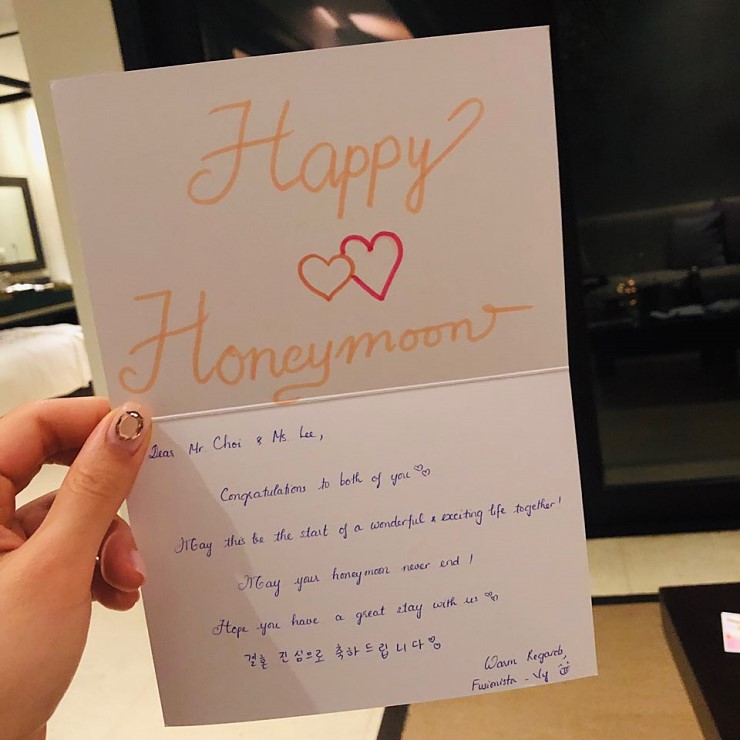 Happy
Honeymoon
Dear Mr. Choi & Ms. Lee,
Congratulations to both of you
May this be the start of a wonderful & exciting life together!
May your honeymoon never end!
Hope you have a great stay with us
결혼 진심으로 축하드립니다
Warm Regards,
Fusionista - Vy